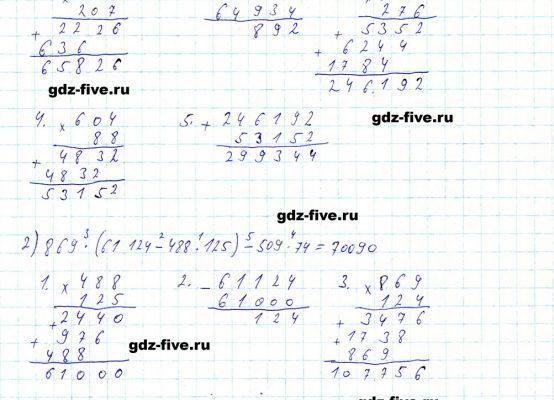 207
+ 2226
636
65826
64934
892
276
+ 5352
+ 6244
1784
246192
gdz-five.ru
gdz-five.ru
4. × 604
88
+ 4832
4832
53152
5. + 246192
53152
299344
gdz-five.ru
2) 869 · (61 124 − 488 · 125) − 509 · 74 = 70090
3 2 1 5 4
1. × 488
125
+ 2440
+ 976
488
61000
2. − 61124
61000
124
3. × 869
124
+ 3476
+ 1738
869
107756
gdz-five.ru